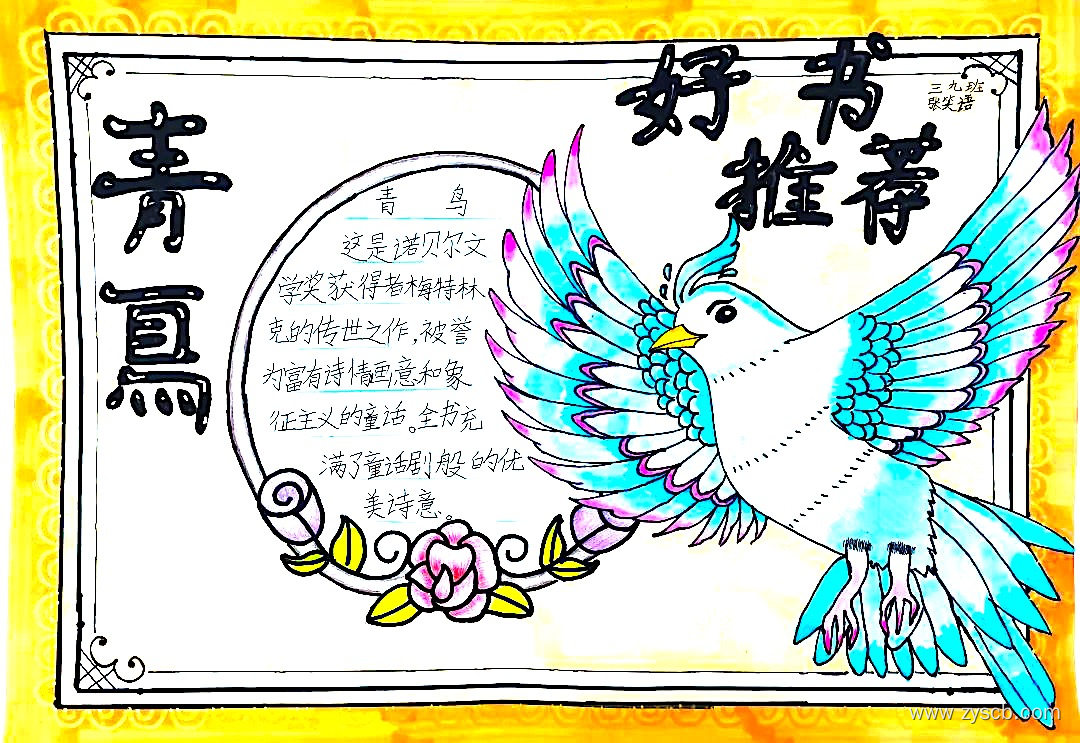 好书
推荐
三九班
张笑语
青鸟
青 鸟
这是诺贝尔文
学奖获得者梅特林
克的传世之作,被誉
为富有诗情画意和象
征主义的童话。全书充
满了童话剧般的优
美诗意。
www.zyscb.com